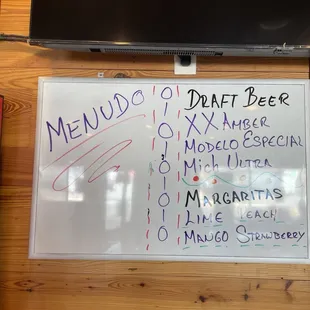 MENUDO
DRAFT BEER
XX AMBER
MODELO ESPECIAL
Mich ULTRA
MARGARITAS
LIME PEACH
MANGO STRAWBERRY